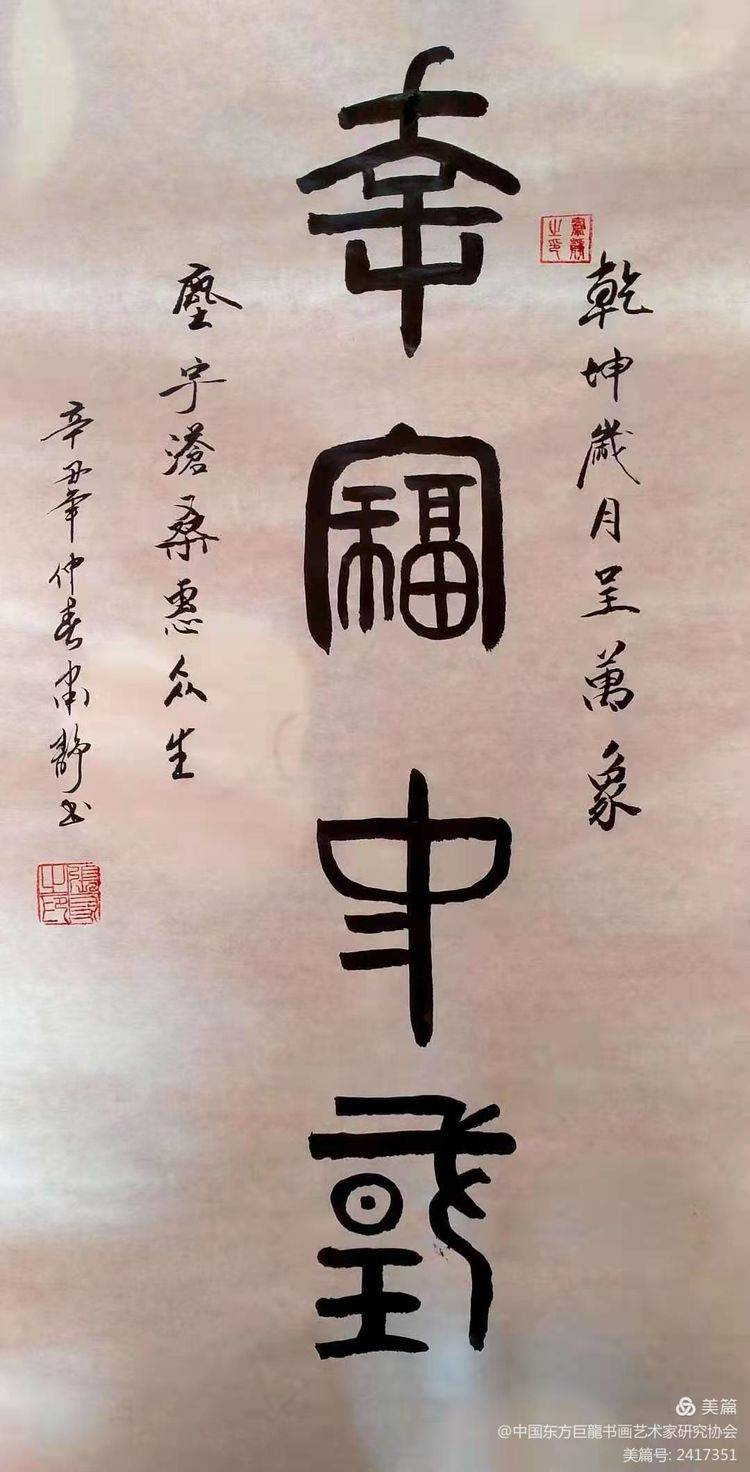 乾坤歲月呈萬象
幸福中國
塵宇滄桑惠众生
辛丑年仲春静书
美篇
@中国东方巨龍书画艺术家研究协会
美篇号: 2417351